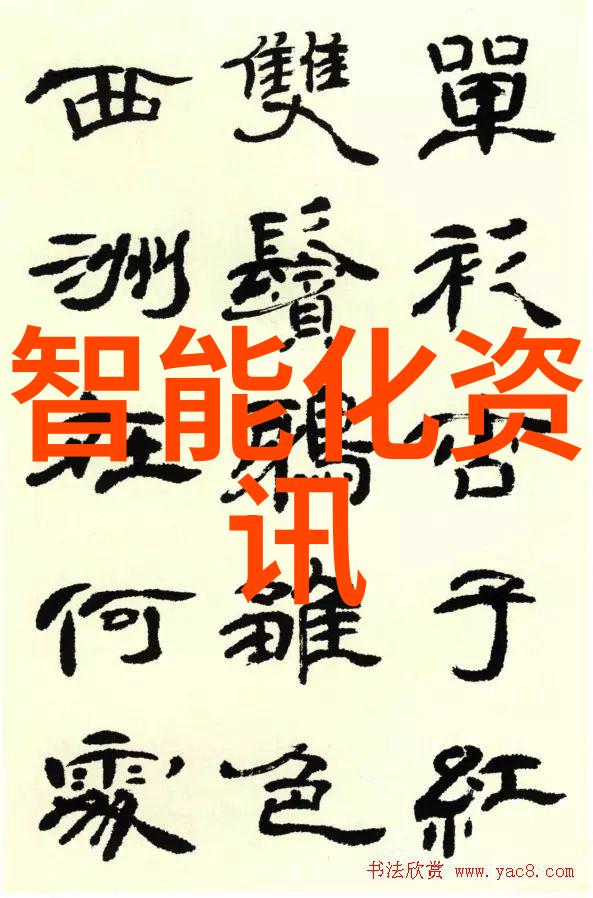 單衫杏子紅
雙鬢鴉雛色
西洲在何處
智能化资
讯
书法欣赏 www.yac8.com